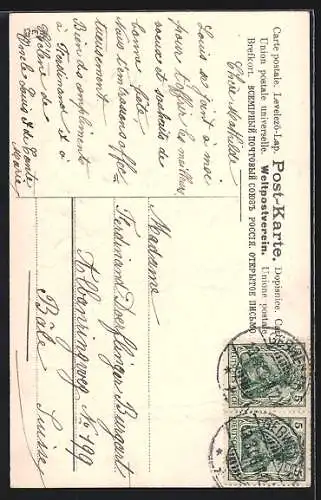 Carte postale. Levelező-Lap. Post-Karte. Dopisnice.
Union postale universelle. Weltpostverein. Unione postale
Brefkort. ВСЕМІРНЫЙ ПОЧТОВЫЙ СОЮЗЪ РОССІЯ. ОТКРЫТОЕ ПИСЬМО
Chère Mathilde
Louis se joint à moi
pour t'offrir les meilleurs
voeux et souhaits de
bonne fête,
tous t'embrassons affec
tueusement
Bien des compliments
à Ferdinand et à
Hélène de
Oncle Louis & de Tante
Marie
Madame
Ferdinand Doerflinger Bungart
No 199
Bâle
Suisse
5 5
5 5